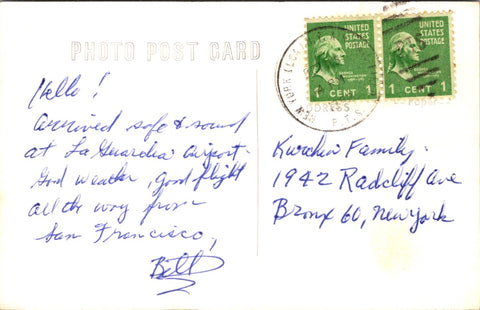 PHOTO POST CARD
Hello!
Arrived safe & sound
at La Guardia Airport.
Good weather, good flight
all the way from
San Francisco,
Bill
UNITED STATES POSTAGE
1 CENT 1
UNITED STATES POSTAGE
1 CENT 1
NEW YORK
P.T.S.
Family.
1942 Radcliff Ave
Bronx 60, New York